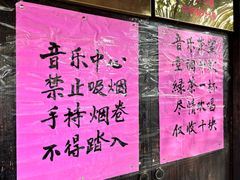 音乐中心
禁止吸烟
手持烟卷
不得踏入
音乐茶座
绿茶一杯
尽情欢唱
仅收十块